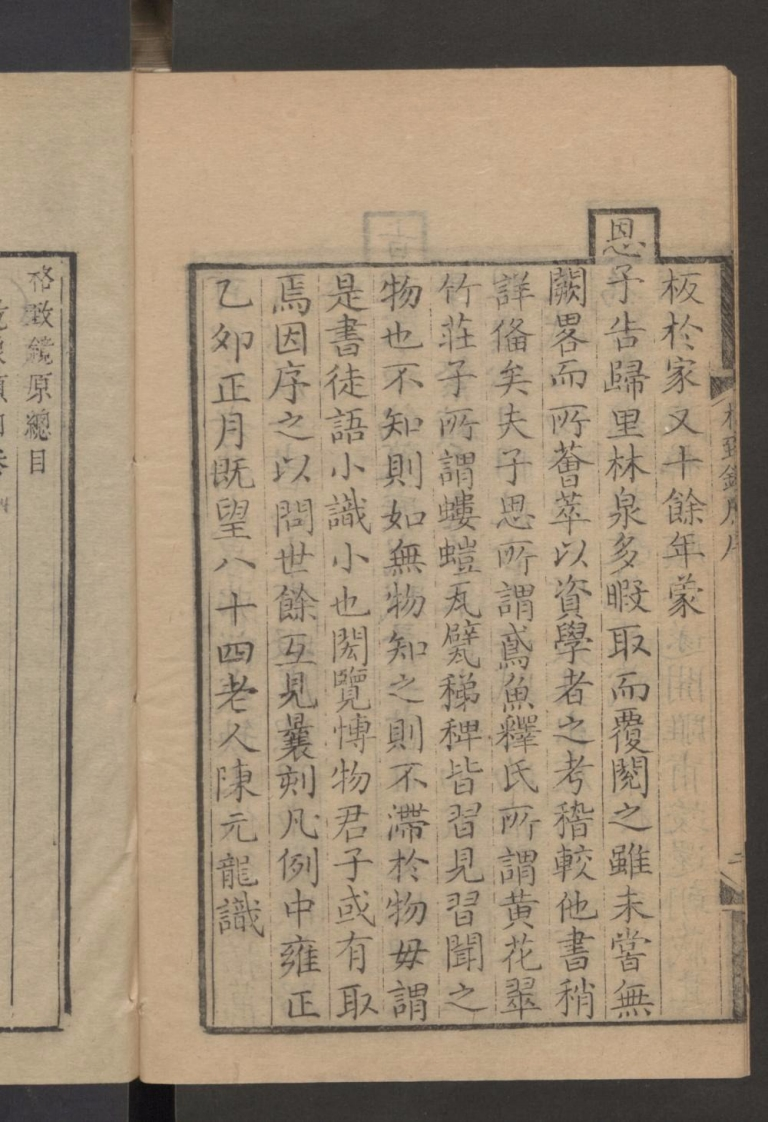 板於家又十餘年蒙
恩予告歸里林泉多暇取而覆閱之雖未嘗無
闕畧而所薈萃以資學者之考稽較他書稍
詳俻矣夫子思所謂鳶魚釋氏所謂黄花翠
竹莊子所謂螻螘瓦甓稊稗皆習見習聞之
物也不知則如無物知之則不滯於物毋謂
是書徒語小識小也閎覽博物君子或有取
焉因序之以問世餘互見曩刻凡例中雍正
乙夘正月既望八十四老人陳元龍識
格致鏡原總目